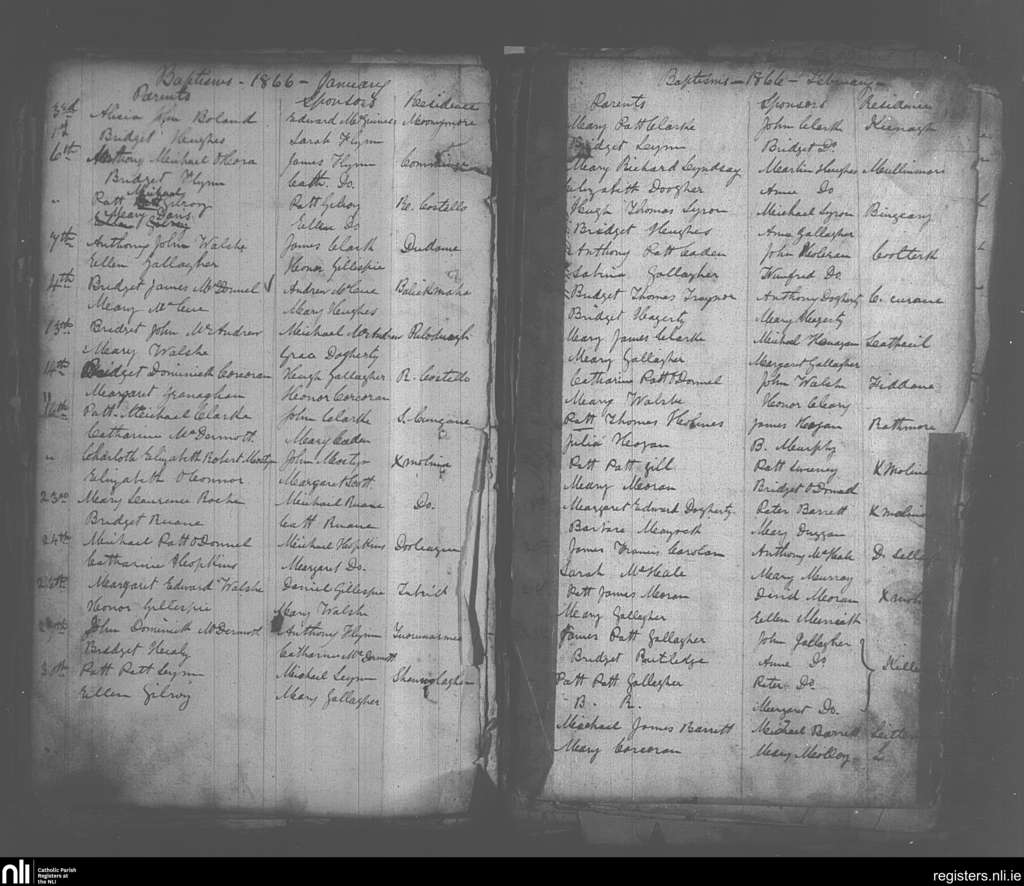 Baptisms - 1866 - January
Parents Sponsors Residence
3rd Alicia John Boland Edward McGuiness Moonymore
1st Bridget Hughes Sarah Flynn
6th Anthony Michael O'Hora James Flynn
Bridget Flynn Cath. Do.
" Patt Michael Gilroy Patt Gilroy Re. Costello
Mary Davis Ellen Do
7th Anthony John Walshe James Clark
Ellen Gallagher Honor Gillespie
4th Bridget James McDonnel Andrew McCue
Mary McCue Mary Hughes
13th Bridget John McAndrew Michael McAndrew
Mary Walshe Grace Dogherty
14th Bridget Dominick Corcoran Hugh Gallagher R. Costello
Margaret Granaghan Honor Corcoran
16th Patt Michael Clarke John Clarke
Catharine McDermott Mary Caden
" Charlotte Elizabeth Robert Mostyn John Mostyn Xmolina
Elizabeth O'Connor Margaret Scott
23rd Mary Laurence Roche Michael Ruane Do.
Bridget Ruane Catt Ruane
24th Michael Patt O'Donnel Michael Hopkins
Catharine Hopkins Margaret Do.
Margaret Edward Walshe Daniel Gillespie
Honor Gillespie Mary Walshe
John Dominick McDermott Anthony Flynn
Bridget Healy Catharine McDermott
30th Patt Patt Leynn Michael Leynn
Ellen Gilroy Mary Gallagher
Baptisms - 1866 - February
Parents Sponsors Residence
Mary Patt Clarke John Clarke
Bridget Leynn Bridget Do
Mary Richard Lyndsay Martin Hughes
Elizabeth Doogher Anne Do
Hugh Thomas Syron Michael Syron
Bridget Hughes Anne Gallagher
Anthony Patt Caden John
Sabina Gallagher Winifred Do
Bridget Thomas Traynor Anthony Dogherty
Bridget Hegerty Mary Hegerty
Mary James Clarke Michael Flanagan
Mary Gallagher Margaret Gallagher
Catharine Patt O'Donnel John Walsh
Mary Walshe Honor Cleary
Patt Thomas Holmes James Keogan Rathmore
Julia Keogan B. Murphy
Patt Patt Gill Patt Sweeny X Molina
Mary Moran Bridget O'Donnell
Margaret Edward Dogherty Peter Barrett X molina
Barbara Mayock Mary Duggan
James Francis Carolan Anthony McHale
Sarah McHale Mary Murray
Patt James Moran David Moran
Mary Gallagher Ellen
James Patt Gallagher John Gallagher
Bridget Rutledge Anne Do
Patt Patt Gallagher Peter Do
B. R. Margaret Do.
Michael James Barrett Michael Barrett
Mary Corcoran Mary Molloy
nli
Catholic Parish
Registers at
the NLI
registers.nli.ie